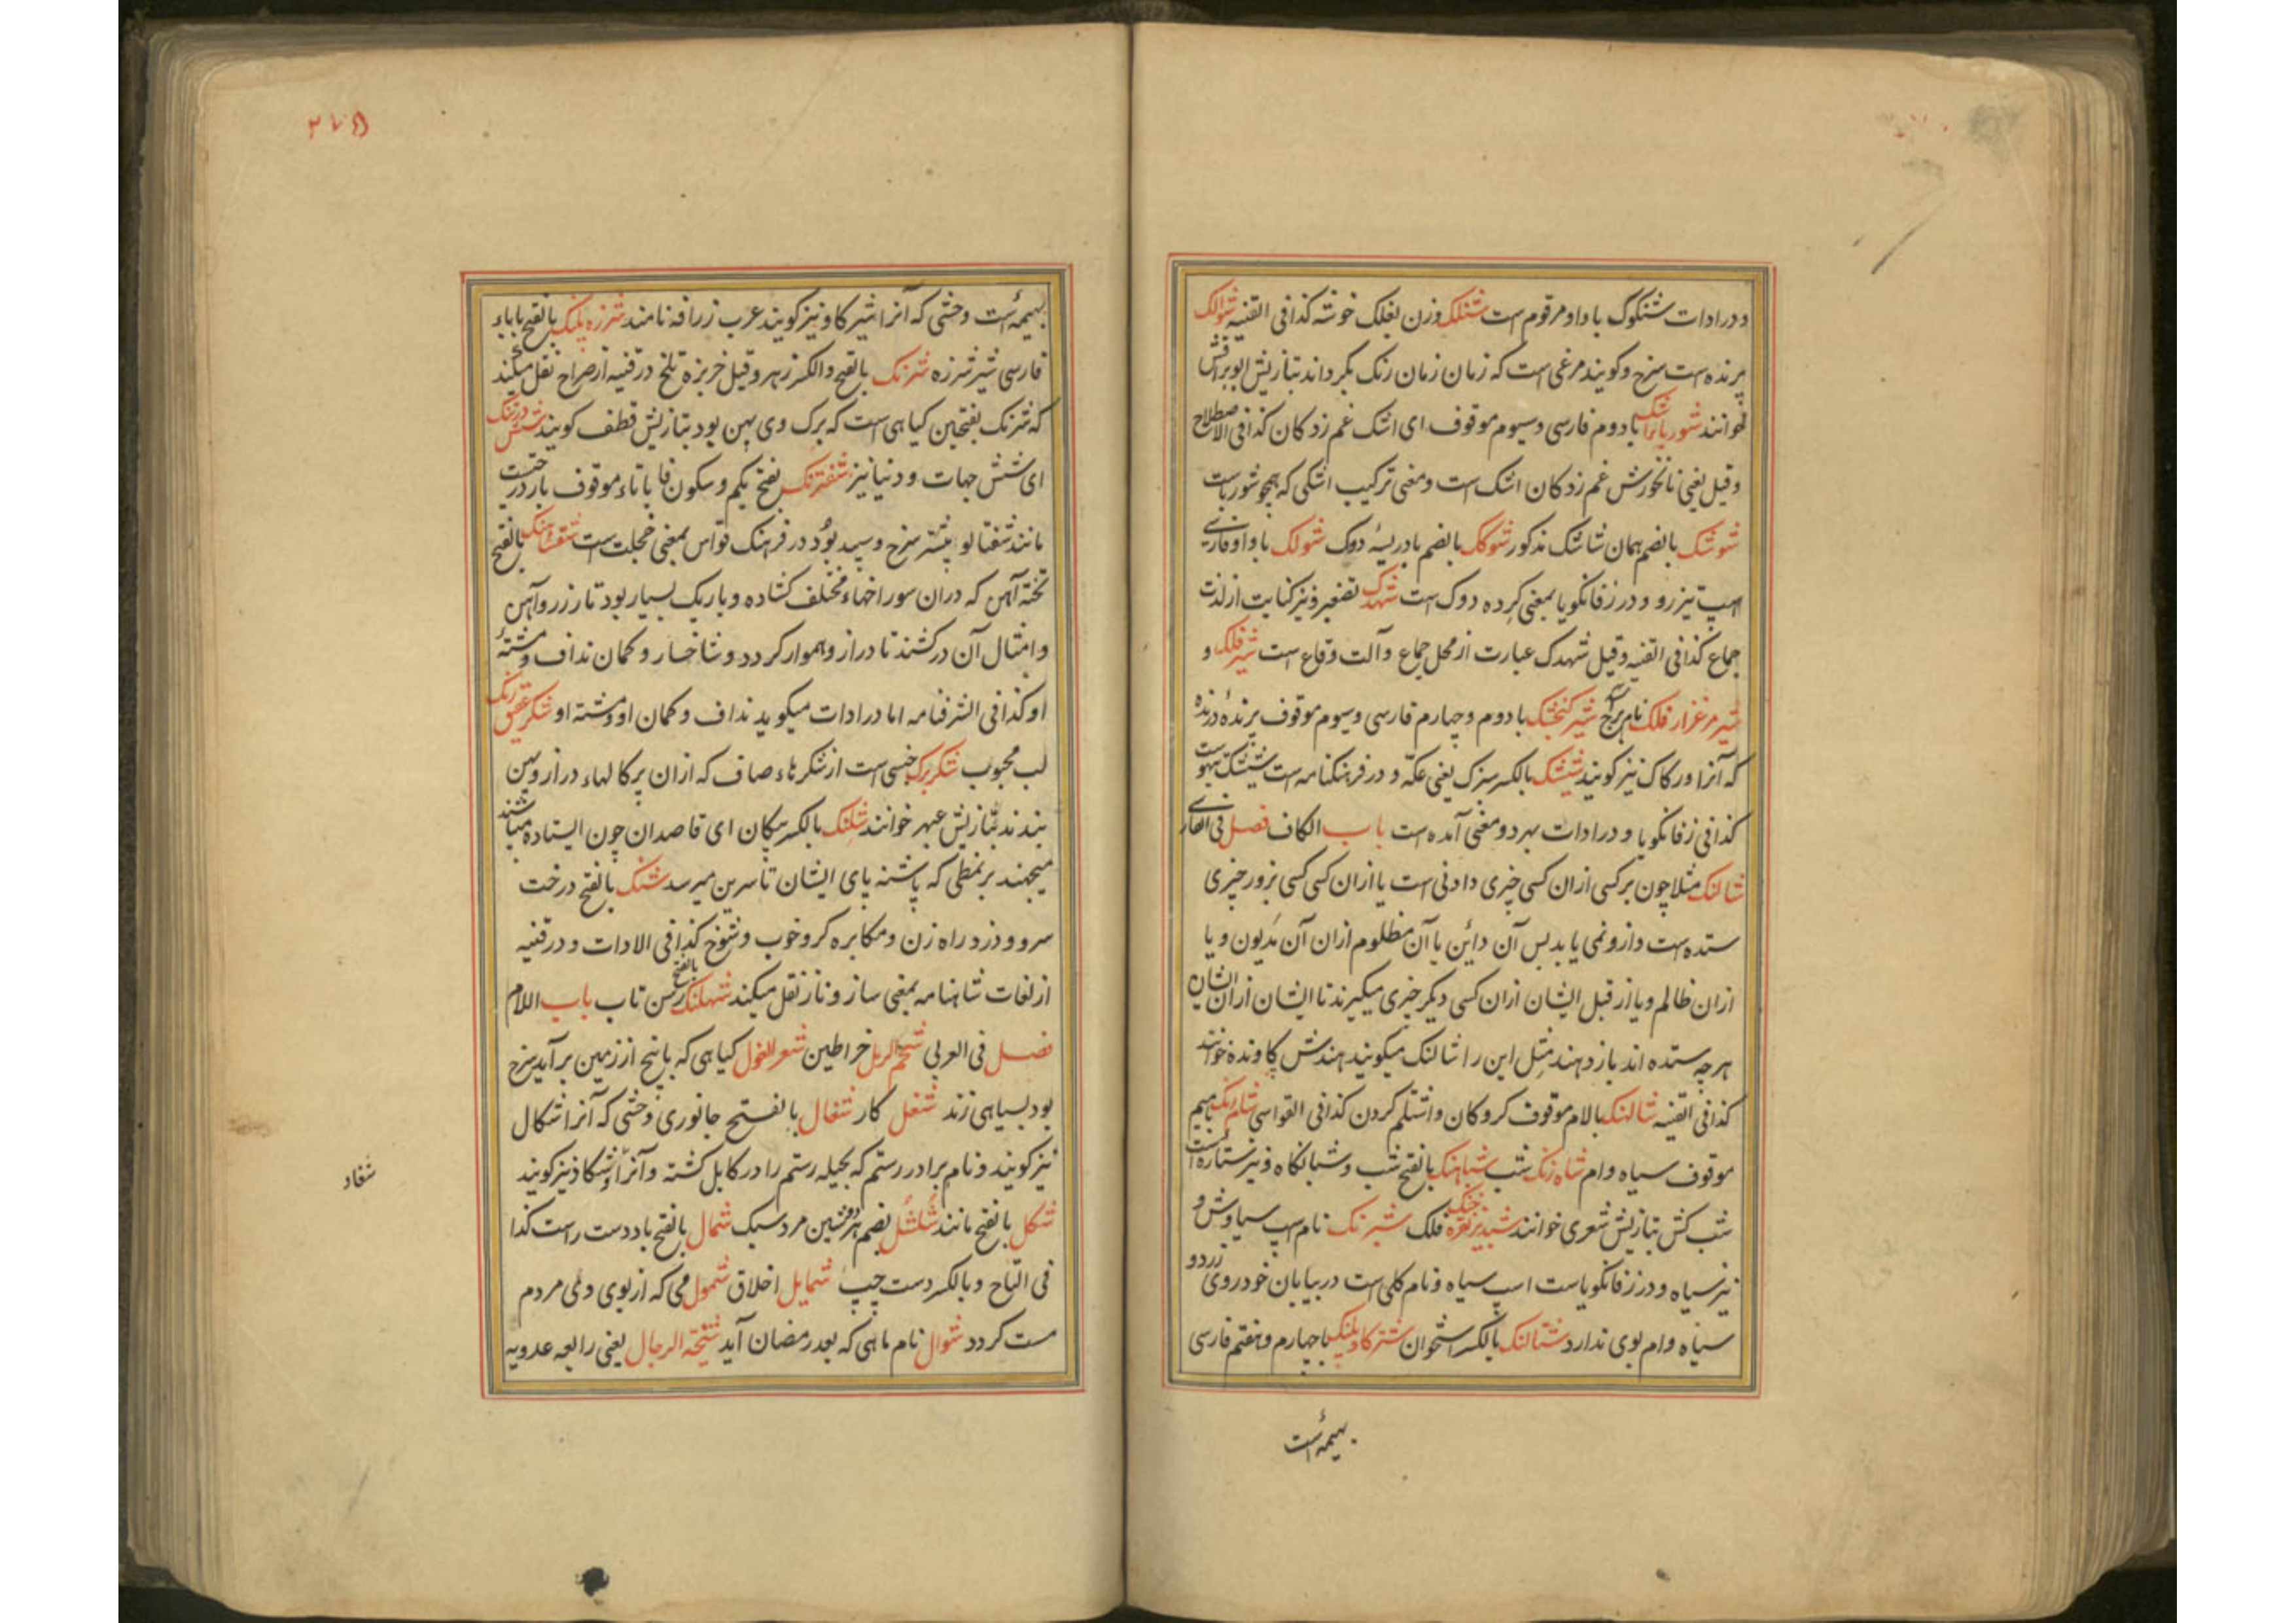 و در ادات شنکوک با واو مرقوم است شنلک وزن بغلک خوشه کذا فی القنیه شوالک
پرنده است سرخ و کویند مرغی است که زمان زمان رنک بکرداند بتازیش ابوبراقش
خوانند شوربا اشک با دوم فارسی و سیوم موقوف ای اشک غم زدکان کذا فی الاصطلاح
و قیل یعنی نانخورش غم زدکان اشک است و معنی ترکیب اشکی که همچو شورباست
شوشک بالضم همان شاشک مذکور شوکک بالضم بادریسهٔ دوک شولک با واو فارسی
اسپ تیز رو و در زفانکویا بمعنی کرده دوک است شهدک تصغیر و نیز کنایت از لذت
جماع کذا فی القنیه و قیل شهدک عبارت از محل جماع و آلت وقاع است شیر فلک و
شیر مرغزار فلک نام برج شیر کنجشک با دوم و چهارم فارسی و سیوم موقوف پرندهٔ درنده
که آنرا ورکاک نیز کویند شیشک بالکسر سزک یعنی عکّه و در فرهنکنامه است شیشک تیهوست
کذا فی زفانکویا و در ادات بهر دو معنی آمده است باب الکاف فصل فی الفارسی
شالنک مثلا چون بر کسی ازان کسی چیزی دادنی است یا ازان کسی کسی بزور چیزی
ستده است و ازو نمی یابد پس آن دائن یا آن مظلوم ازان آن مدیون و یا
ازان ظالم و یا از قبل ایشان ازان کسی دیکر چیزی میکیرند تا ایشان ازان ایشان
هر چه ستده اند باز دهند مثل این را شالنک میکویند هندش خوانند
کذا فی القنیه شالنک بالام موقوف کروکان و اشتلم کردن کذا فی القواسی شلم رنک بامیم
موقوف سیاه وام شاه زنک شب شباهنک بالفتح شب و شبانکاه و نیز ستاره است
شب کش بتازیش شعری خوانند شبدیز نقره خنک فلک شبرنک نام اسپ سیاوش و
نیز سیاه و در زفانکویاست اسپ سیاه و نام کلی است در بیابان خودروی زرد و
سیاه وام بوی ندارد شتالنک بالکسر استخوان شترکاو پلنک با چهارم و هفتم فارسی
بهیمهٔ است
بهیمهٔ است وحشی که آنرا شیر کاو نیز کویند عرب زرافه نامند شرزه پلنک بالفتح باباء
فارسی شیر شرزه شرنک بالفتح و الکسر زهر و قیل خربزه تلخ در قنیه از صراح نقل میکند
که شرنک بفتحین کیاهی است که برک وی پهن بود بتازیش قطف کویند شش درنک
ای شش جهات و دنیا نیز شفترنک بفتح یکم و سکون فا با تاء موقوف بار درختیست
مانند شفتالو بیشتر سرخ و سپید بود در فرهنک قواس بمعنی خجلت است شفشاهنک بالفتح
تخته آهن که دران سوراخهاء مختلف کشاده و باریک بسیار بود تا زر و آهن
و امثال آن در کشند تا دراز و هموار کردد و شاخسار و کمان نداف و مشتهٔ
او کذا فی الشرفنامه اما در ادات میکوید نداف و کمان او و مشته او شکر عقیق رنک
لب محبوب شکربرک جنسی است از شکرهاء صاف که ازان پرکالهاء دراز و پهن
بندند بتازیش عبهر خوانند شلنک بالکسر پیکان ای قاصدان چون ایستاده میباشند
میجهند بر نمطی که پاشنه پای ایشان تا سرین میرسد شنک بالفتح درخت
سرو و دزد راه زن و مکابره کر و خوب و شوخ کذا فی الادات و در قنیه
از لغات شاهنامه بمعنی ساز و ناز نقل میکند شهلنک بالفتح رسن تاب باب اللام
فصل فی العربی شحم الربل خراطین شعر الغول کیاهی که با بیخ از زمین بر آید سرخ
بود بسیاهی زند شغل کار شغال بالفتح جانوری وحشی که آنرا شکال
نیز کویند و نام برادر رستم که بحیله رستم را در کابل کشته و آنرا شکاد نیز کویند
شکل بالفتح مانند شلشل بضم هر دو شین مرد سبک شمال بالفتح باد دست راست کذا
فی التاج و بالکسر دست چپ شمایل اخلاق شمول می که از بوی وی مردم
مست کردد شوال نام ماهی که بعد رمضان آید شیخة الرجال یعنی رابعه عدویه
شغاد